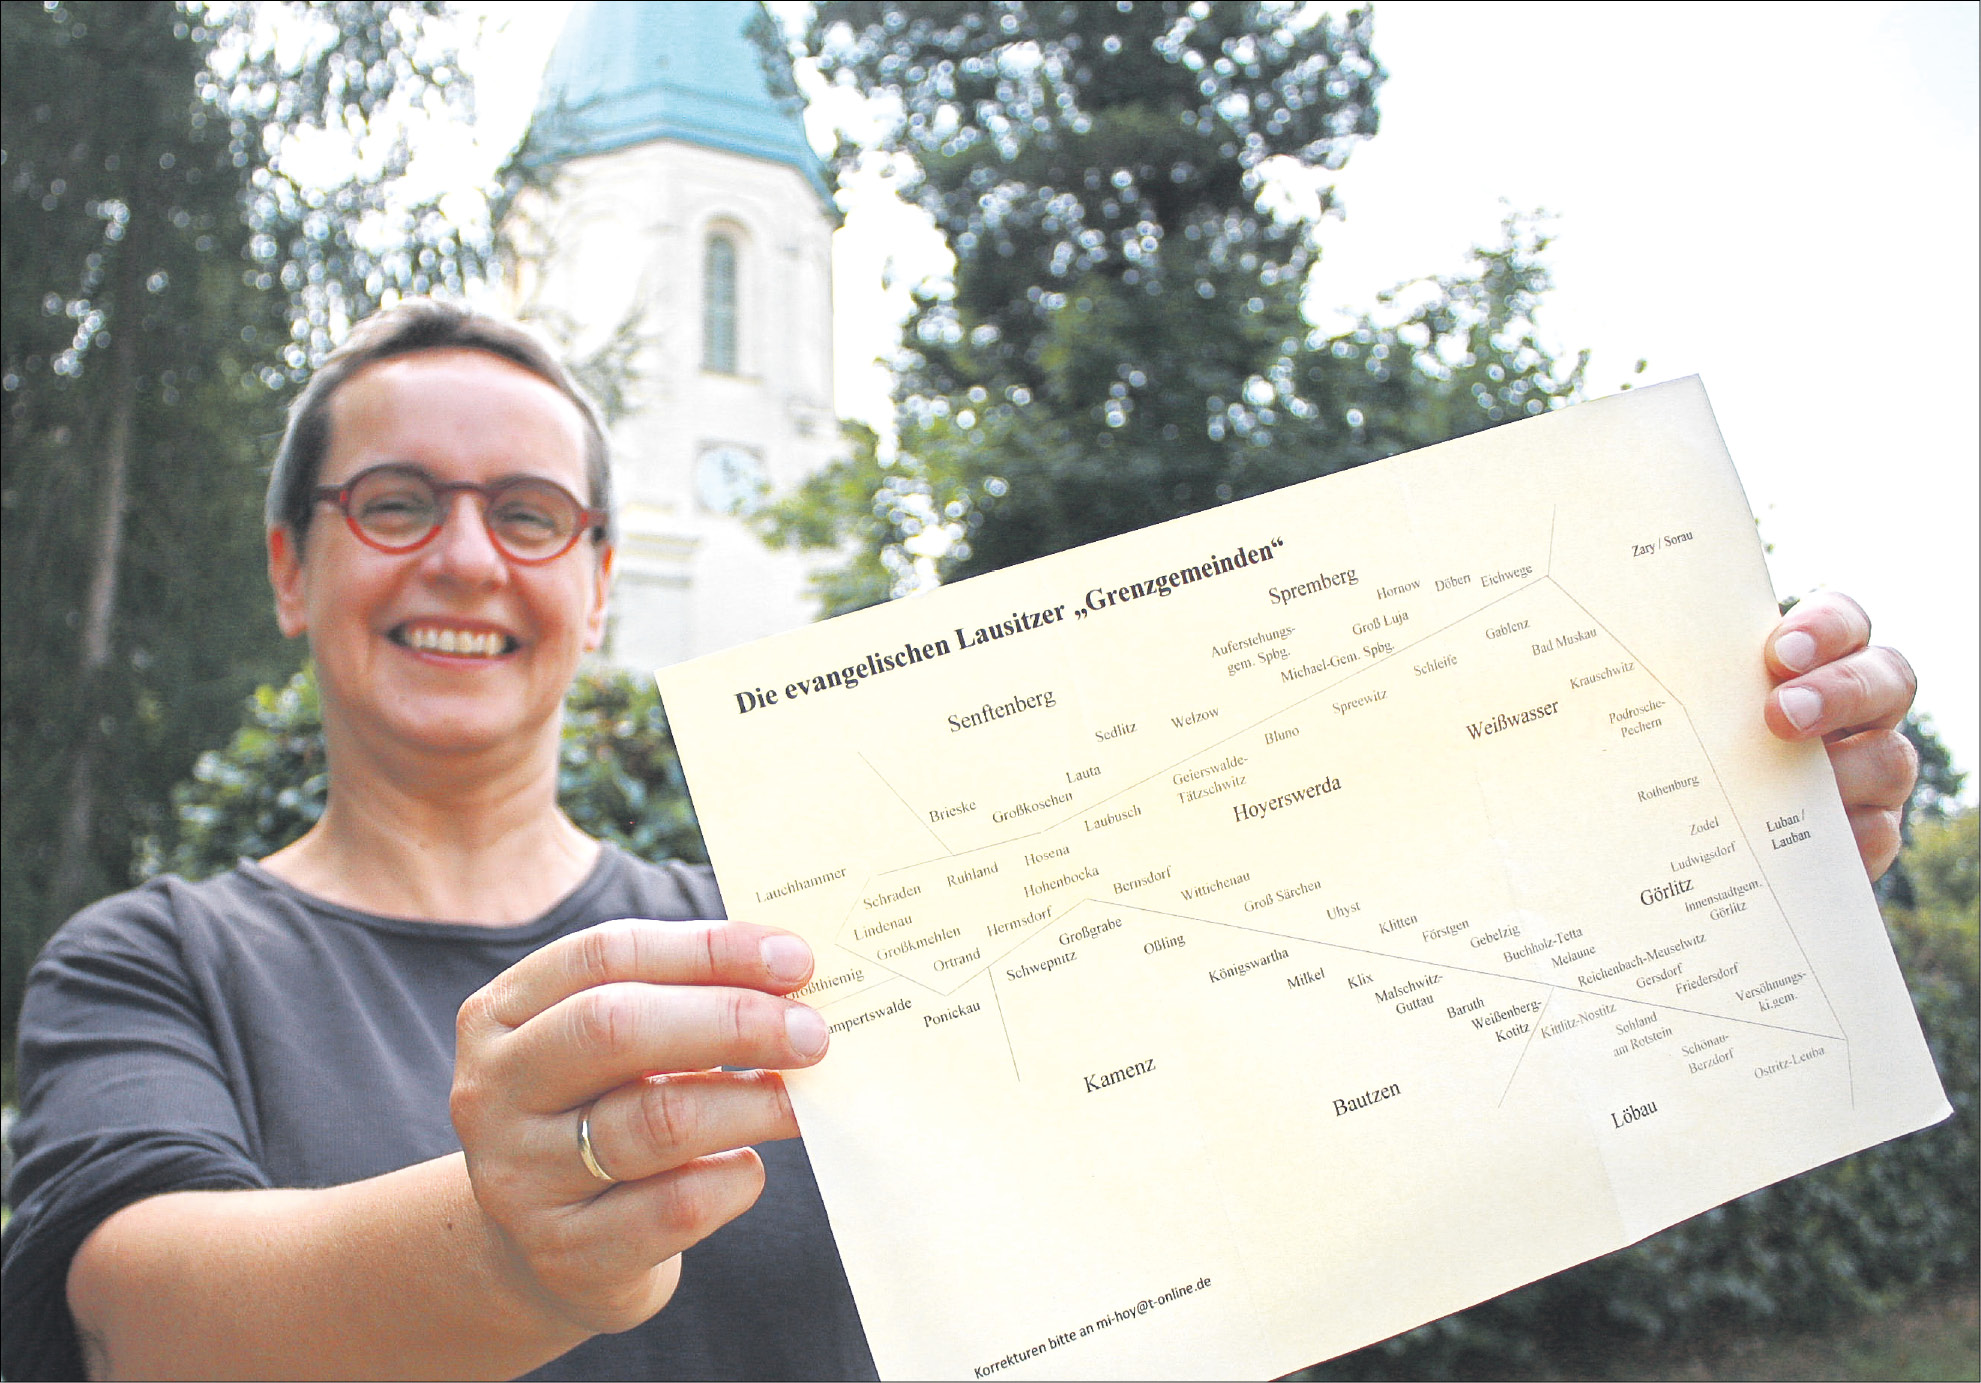 Die evangelischen Lausitzer „Grenzgemeinden“
Zary / Sorau
Spremberg
Hornow
Döbern
Eichwege
Auferstehungs-
gem. Spbg.
Groß Luja
Michael-Gem. Spbg.
Gablenz
Bad Muskau
Senftenberg
Sedlitz
Welzow
Spreewitz
Schleife
Krauschwitz
Weißwasser
Podrosche-
Pechern
Bluno
Lauta
Geierswalde-
Tätzschwitz
Brieske
Großkoschen
Laubusch
Hoyerswerda
Rothenburg
Zodel
Luban /
Lauban
Ludwigsdorf
Lauchhammer
Schraden
Ruhland
Hosena
Hohenbocka
Bernsdorf
Wittichenau
Groß Särchen
Uhyst
Klitten
Förstgen
Gebelzig
Buchholz-Tetta
Melaune
Görlitz
Innenstadtgem.
Görlitz
Lindenau
Großkmehlen
Hermsdorf
Ortrand
Großgrabe
Oßling
Schwepnitz
Königswartha
Milkel
Klix
Malschwitz-
Guttau
Baruth
Weißenberg-
Kotitz
Reichenbach-Meuselwitz
Gersdorf
Friedersdorf
Versöhnungs-
ki.gem.
Großthiemig
ampertswalde
Ponickau
Kittlitz-Nostitz
Sohland
am Rotstein
Schönau-
Berzdorf
Ostritz-Leuba
Kamenz
Bautzen
Löbau
Korrekturen bitte an mi-hoy@t-online.de